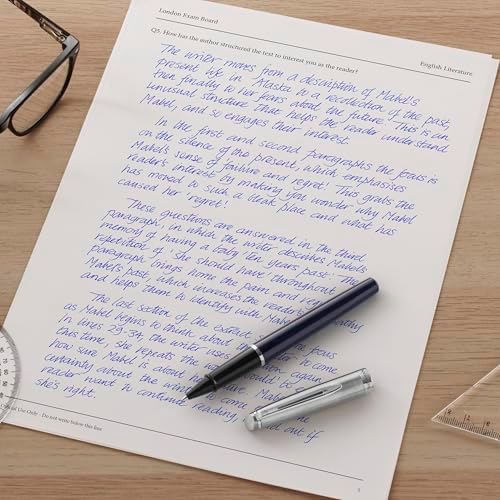 London Exam Board
English Literature
Q5. How has the author structured the text to interest you as the reader?
The writer moves from a description of Mabel's
present life in Alaska to a recollection of the past,
then finally to her fears about the future. This is an
unusual structure that helps the reader understand
Mabel, and so engages their interest.
In the first and second paragraphs the focus is
on the silence of the present, which emphasises
Mabel's sense of failure and regret! This grabs the
reader's interest by making you wonder why Mabel
has moved to such a bleak place and what has
caused her 'regret'!
These questions are answered in the third
paragraph, in which the writer describes Mabel's
memory of having a baby 'ten years past'. The
repetition of 'she should have' throughout
paragraph brings home the pain and
Mabel's past, which increases the reader's
and helps them to identify with Mabel
The last section of the extract focus
as Mabel begins to think about the to come
this time, she repeats the again
In lines 29-34 the writer uses
how sure Mabel is about
certainty about the winter to come
reader want to continue reading, out if
she's right.
Use Only - Do not write below this line